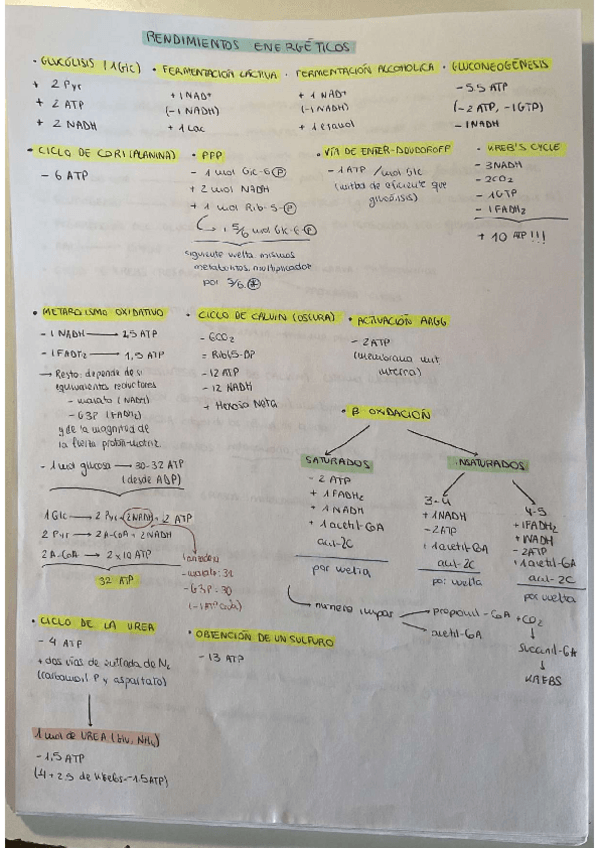 RENDIMIENTOS ENERGÉTICOS
· GLUCÓLISIS (1Glc)
+ 2 Pyr
+ 2 ATP
+ 2 NADH
· FERMENTACIÓN LÁCTICA
+ 1 NAD+
(-1 NADH)
+ 1 Lac
· FERMENTACIÓN ALCOHOLICA
+ 1 NAD+
(-1 NADH)
+ 1 etanol
· GLUCONEOGÉNESIS
(-2 ATP, -1GTP)
- 1NADH
· CICLO DE CORI (ALANINA)
- 6 ATP
· PPP
- 1 mol Glc-6-P
+ 2 mol NADH
+ 1 mol Rib-5-P
5/6 mol Glc-6-P
siguiente vuelta mismos
metabolitos multiplicados
por 5/6.
· VÍA DE ENTER-DOUDOROFF
- 1 ATP /mol Glc
(mitad de eficiente que
glucólisis)
· KREB'S CYCLE
- 3NADH
- 2CO2
- 1GTP
- 1FADH2
+ 10 ATP!!!
· METABOLISMO OXIDATIVO
- 1 NADH → 2,5 ATP
- 1FADH2 → 1,5 ATP
→ Resto: depende de si
equivalentes reductores
- malato (NADH)
- G3P (FADH2)
y de la magnitud de
la fuerza protón-motriz.
- 1 mol glucosa → 30-32 ATP
(desde ADP)
1Glc → 2 Pyr + 2NADH + 2 ATP
2 Pyr → 2A-CoA + 2NADH
2A-CoA → 2x10 ATP
32 ATP
- malato: 32
- G3P: 30
· CICLO DE CALVIN (OSCURA)
- 6CO2
- 12 ATP
- 12 NADH
+ Hexosa Neta
· ACTIVACIÓN AAGG
- 2ATP
(membrana mit.
interna)
· β OXIDACIÓN
SATURADOS
- 2 ATP
+ 1FADH2
+ 1 NADH
+ 1 acetil-CoA
acil-2C
por vuelta
INSATURADOS
3-4
+ 1NADH
- 2ATP
+ 1acetil-CoA
acil-2C
por vuelta
4-5
+ 1FADH2
+ 1NADH
- 2ATP
+ 1acetil-CoA
acil-2C
por vuelta
→ número impar → propionil-CoA + CO2
→ acetil-CoA
succinil-CoA
KREBS
· CICLO DE LA UREA
- 4 ATP
+ dos vías de entrada de N2
(carbamoil P y aspartato)
1 mol de UREA
- 1,5 ATP
(4+2,5 de Krebs = -1,5ATP)
· OBTENCIÓN DE UN SULFURO
- 13 ATP